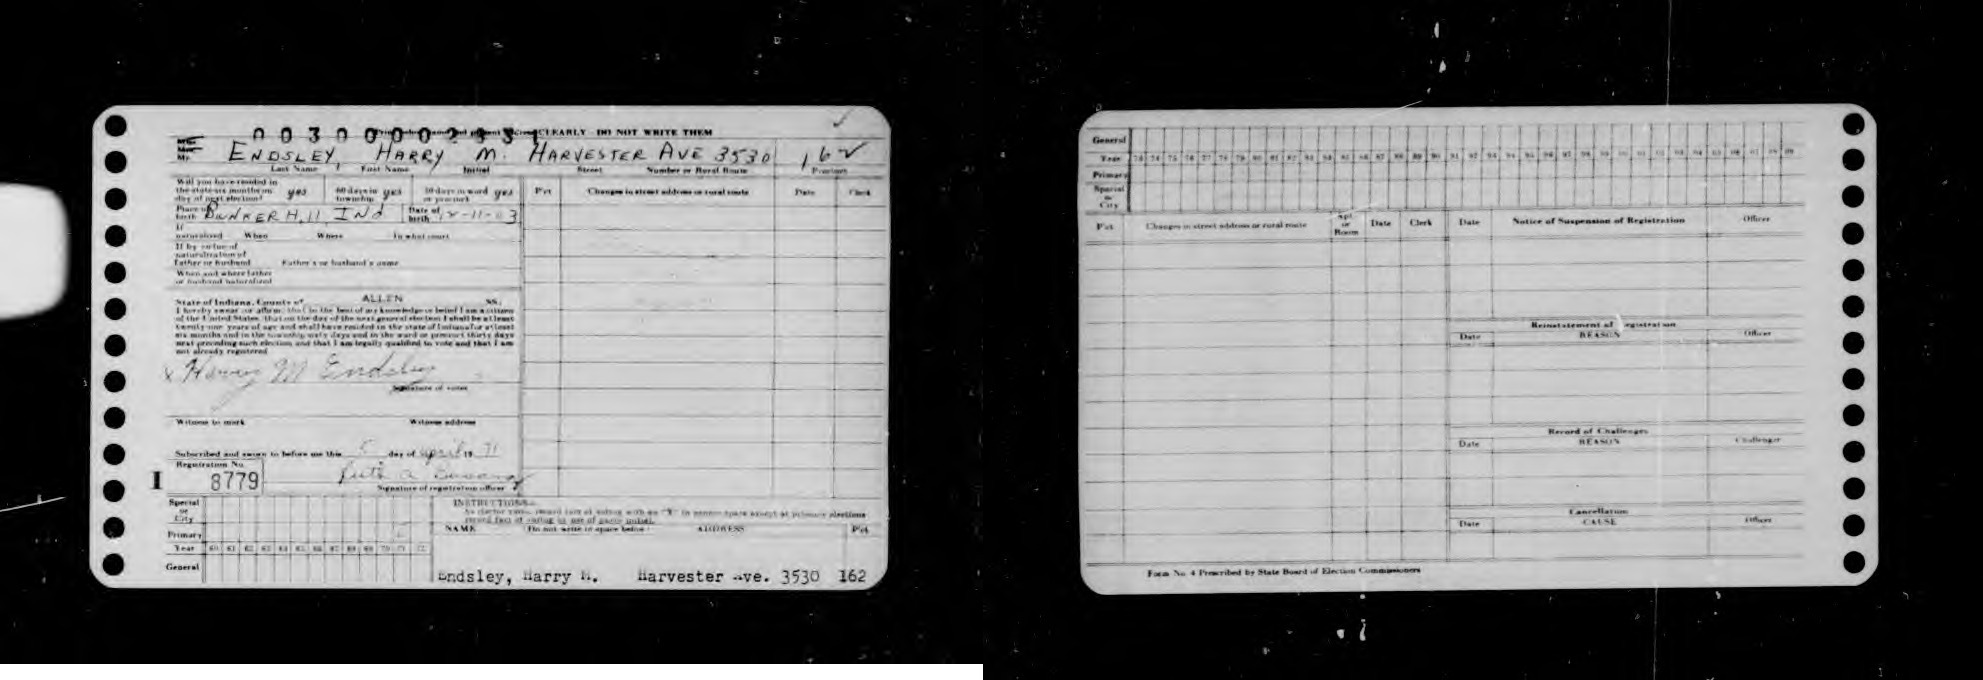 CLEARLY - DO NOT WRITE THEM
ENDSLEY, HARRY M. HARVESTER AVE 3530 162
Last Name First Name Initial Street Number or Rural Route Precinct
Will you have resided in
the state six months on yes 60 days in yes 30 days in ward yes
day of next election? township or precinct
P'ct Changes in street address or rural route Date Clerk
Place of
birth BUNKER HILL IND Date of birth 12-11-03
If
naturalized When Where In what court
If by virtue of
naturalization of
Father or husband Father's or husband's name
When and where father
or husband naturalized
State of Indiana, County of ALLEN SS:
I hereby swear (or affirm) that to the best of my knowledge or belief I am a citizen
of the United States, that on the day of the next general election I shall be at least
twenty-one years of age and shall have resided in the state of Indiana for at least
six months and in the township sixty days and in the ward or precinct thirty days
next preceding such election and that I am legally qualified to vote and that I am
not already registered
x Harry M Endsley
Signature of voter
Witness to mark Witness address
Subscribed and sworn to before me this 5 day of April 19 71
Registration No.
I 8779 Ruth A
Signature of registration officer
Special
or
City
Primary
Year 60 61 62 63 64 65 66 67 68 69 70 71 72
General
INSTRUCTIONS
NAME Do not write in space below ADDRESS P'ct
Endsley, Harry M. Harvester Ave. 3530 162
General
Year 73 74 75 76 77 78 79 80 81 82 83 84 85 86 87 88 89 90 91 92 93 94 95 96 97 98 99
Primary
Special
or
City
P'ct Changes in street address or rural route Apt. or Room Date Clerk
Date Notice of Suspension of Registration Officer
Reinstatement of Registration
Date REASON Officer
Record of Challenges
Date REASON Challenger
Cancellation
Date CAUSE Officer
Form No. 4 Prescribed by State Board of Election Commissioners